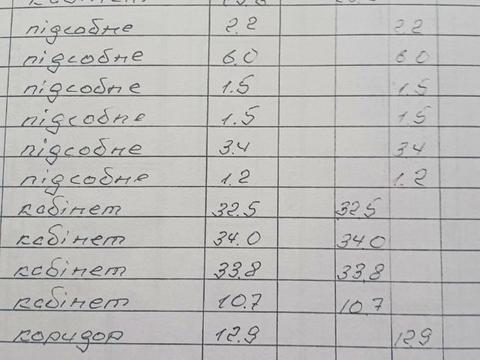 підсобне 2.2 2.2
підсобне 6.0 6.0
підсобне 1.5 1.5
підсобне 1.5 1.5
підсобне 3.4 3.4
підсобне 1.2 1.2
кабінет 32.5 32.5
кабінет 34.0 34.0
кабінет 33.8 33.8
кабінет 10.7 10.7
коридор 12.9 12.9